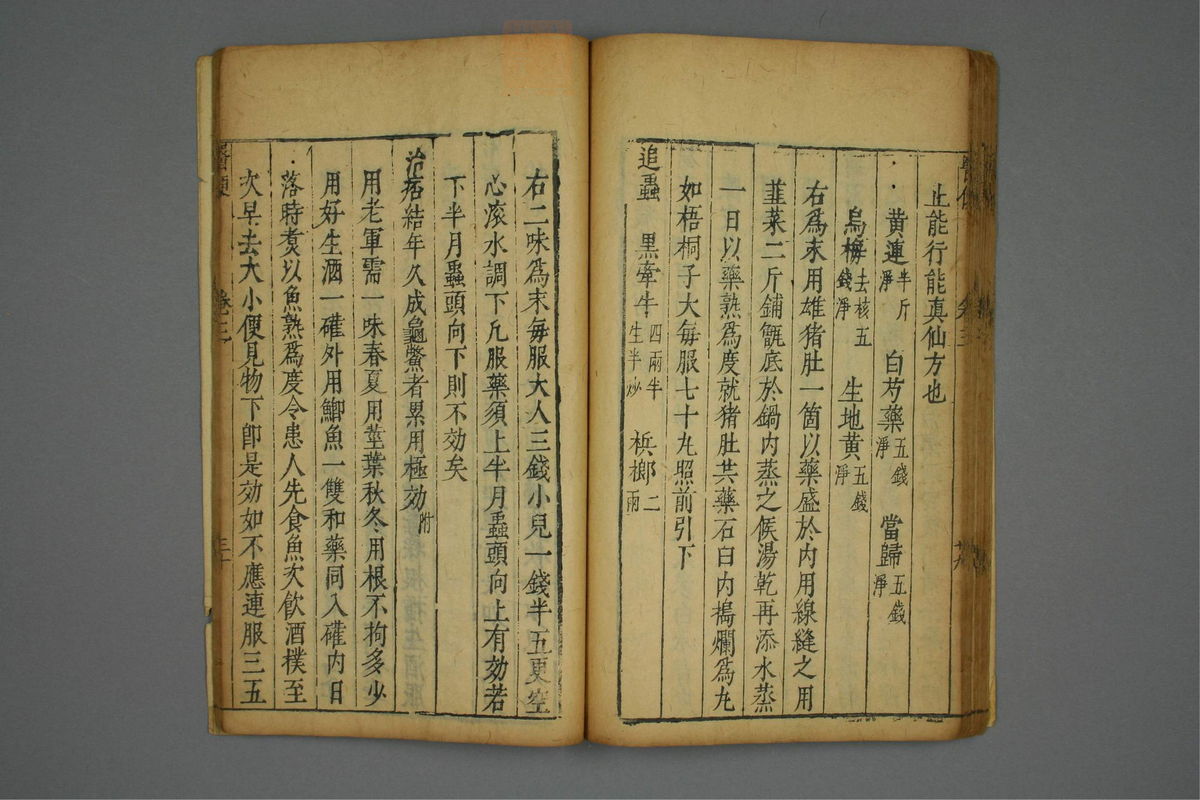 止能行能真仙方也
黄連半斤淨 白芍藥五錢淨 當歸五錢淨
烏梅去核五錢淨 生地黄五錢淨
右爲末用雄猪肚一箇以藥盛於內用線縫之用
韮菜二斤鋪甑底於鍋内蒸之候湯乾再添水蒸
一日以藥熟爲度就猪肚共藥石臼内搗爛爲丸
如梧桐子大每服七十丸照前引下
追蟲 黒牽牛四兩半生半炒 梹榔二兩
右二味爲末每服大人三錢小兒一錢半五更空
心滚水調下凡服藥須上半月蟲頭向上有効若
下半月蟲頭向下則不効矣
治痞結年久成龜鱉者累用極効附
用老軍需一味春夏用莖葉秋冬用根不拘多少
用好生酒一礶外用鯽魚一雙和藥同入礶内日
落時煑以魚熟爲度令患人先食魚次飲酒撲至
次早去大小便見物下卽是効如不應連服三五
卷三